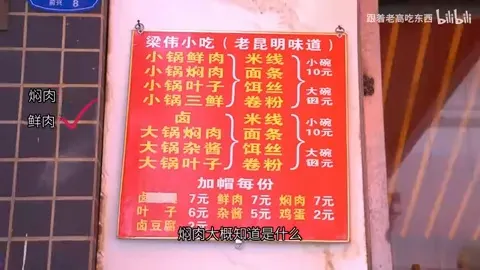 跟着老高吃东西 bilibili
8
梁伟小吃（老昆明味道）
小锅鲜肉 米线 小碗
小锅焖肉 面条 10元
小锅叶子 饵丝 大碗
小锅三鲜 卷粉 12元
卤 米线 小碗
大锅焖肉 面条 10元
大锅杂酱 饵丝 大碗
大锅叶子 卷粉 12元
加帽每份
卤 7元 鲜肉 7元 焖肉 7元
叶子 6元 杂酱 5元 鸡蛋 2元
卤豆腐 2元
焖肉
鲜肉
焖肉大概知道是什么